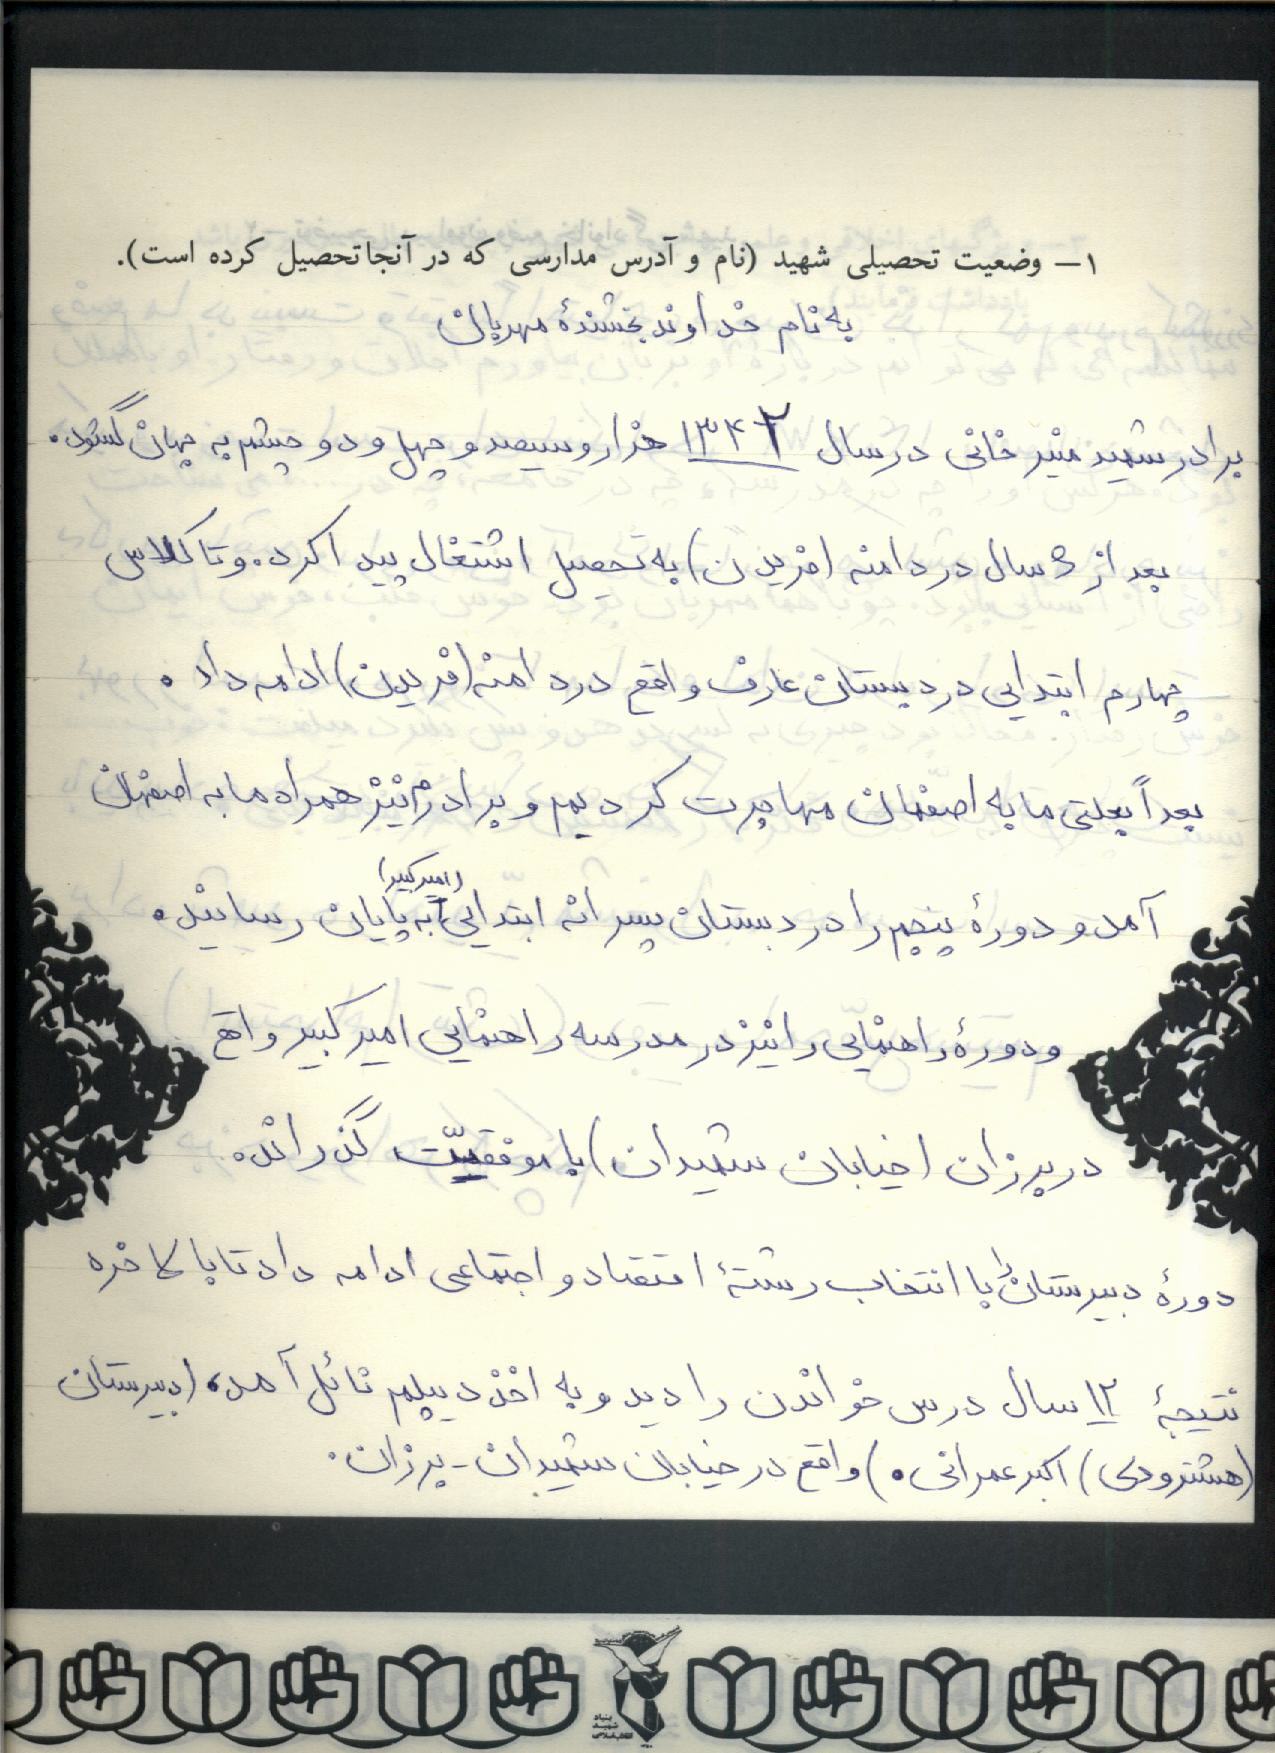 ۱— وضعیت تحصیلی شهید (نام و آدرس مدارسی که در آنجا تحصیل کرده است).
به نام خداوند بخشندهٔ مهربان
برادر شهید منیر خانی در سال ۱۳۴۲ هزار و سیصد و چهل و دو چشم به جهان گشود.
بعد از 5 سال در دامنه (فریدن) به تحصیل اشتغال پیدا کرد. و تا کلاس
چهارم ابتدایی در دبستان عارف واقع در دامنه (فریدن) ادامه داد.
بعداً بعلتی ما به اصفهان مهاجرت کردیم و برادرم نیز همراه ما به اصفهان
آمد و دورهٔ پنجم را در دبستان پسرانه ابتدایی (امیرکبیر) به پایان رسانید.
و دورهٔ راهنمایی را نیز در مدرسه راهنمایی امیرکبیر واقع
در برزان (خیابان شهیدان) با موفقیّت گذراند.
دورهٔ دبیرستان را با انتخاب رشتهٔ اقتصاد و اجتماعی ادامه داد تا بالاخره
نتیجهٔ ۱۲ سال درس خواندن را دید و به اخذ دیپلم نائل آمد. (دبیرستان
(هشترودی) اکبر عمرانی.) واقع در خیابان شهیدان - برزان.
بنیاد
شهید
انقلاب اسلامی